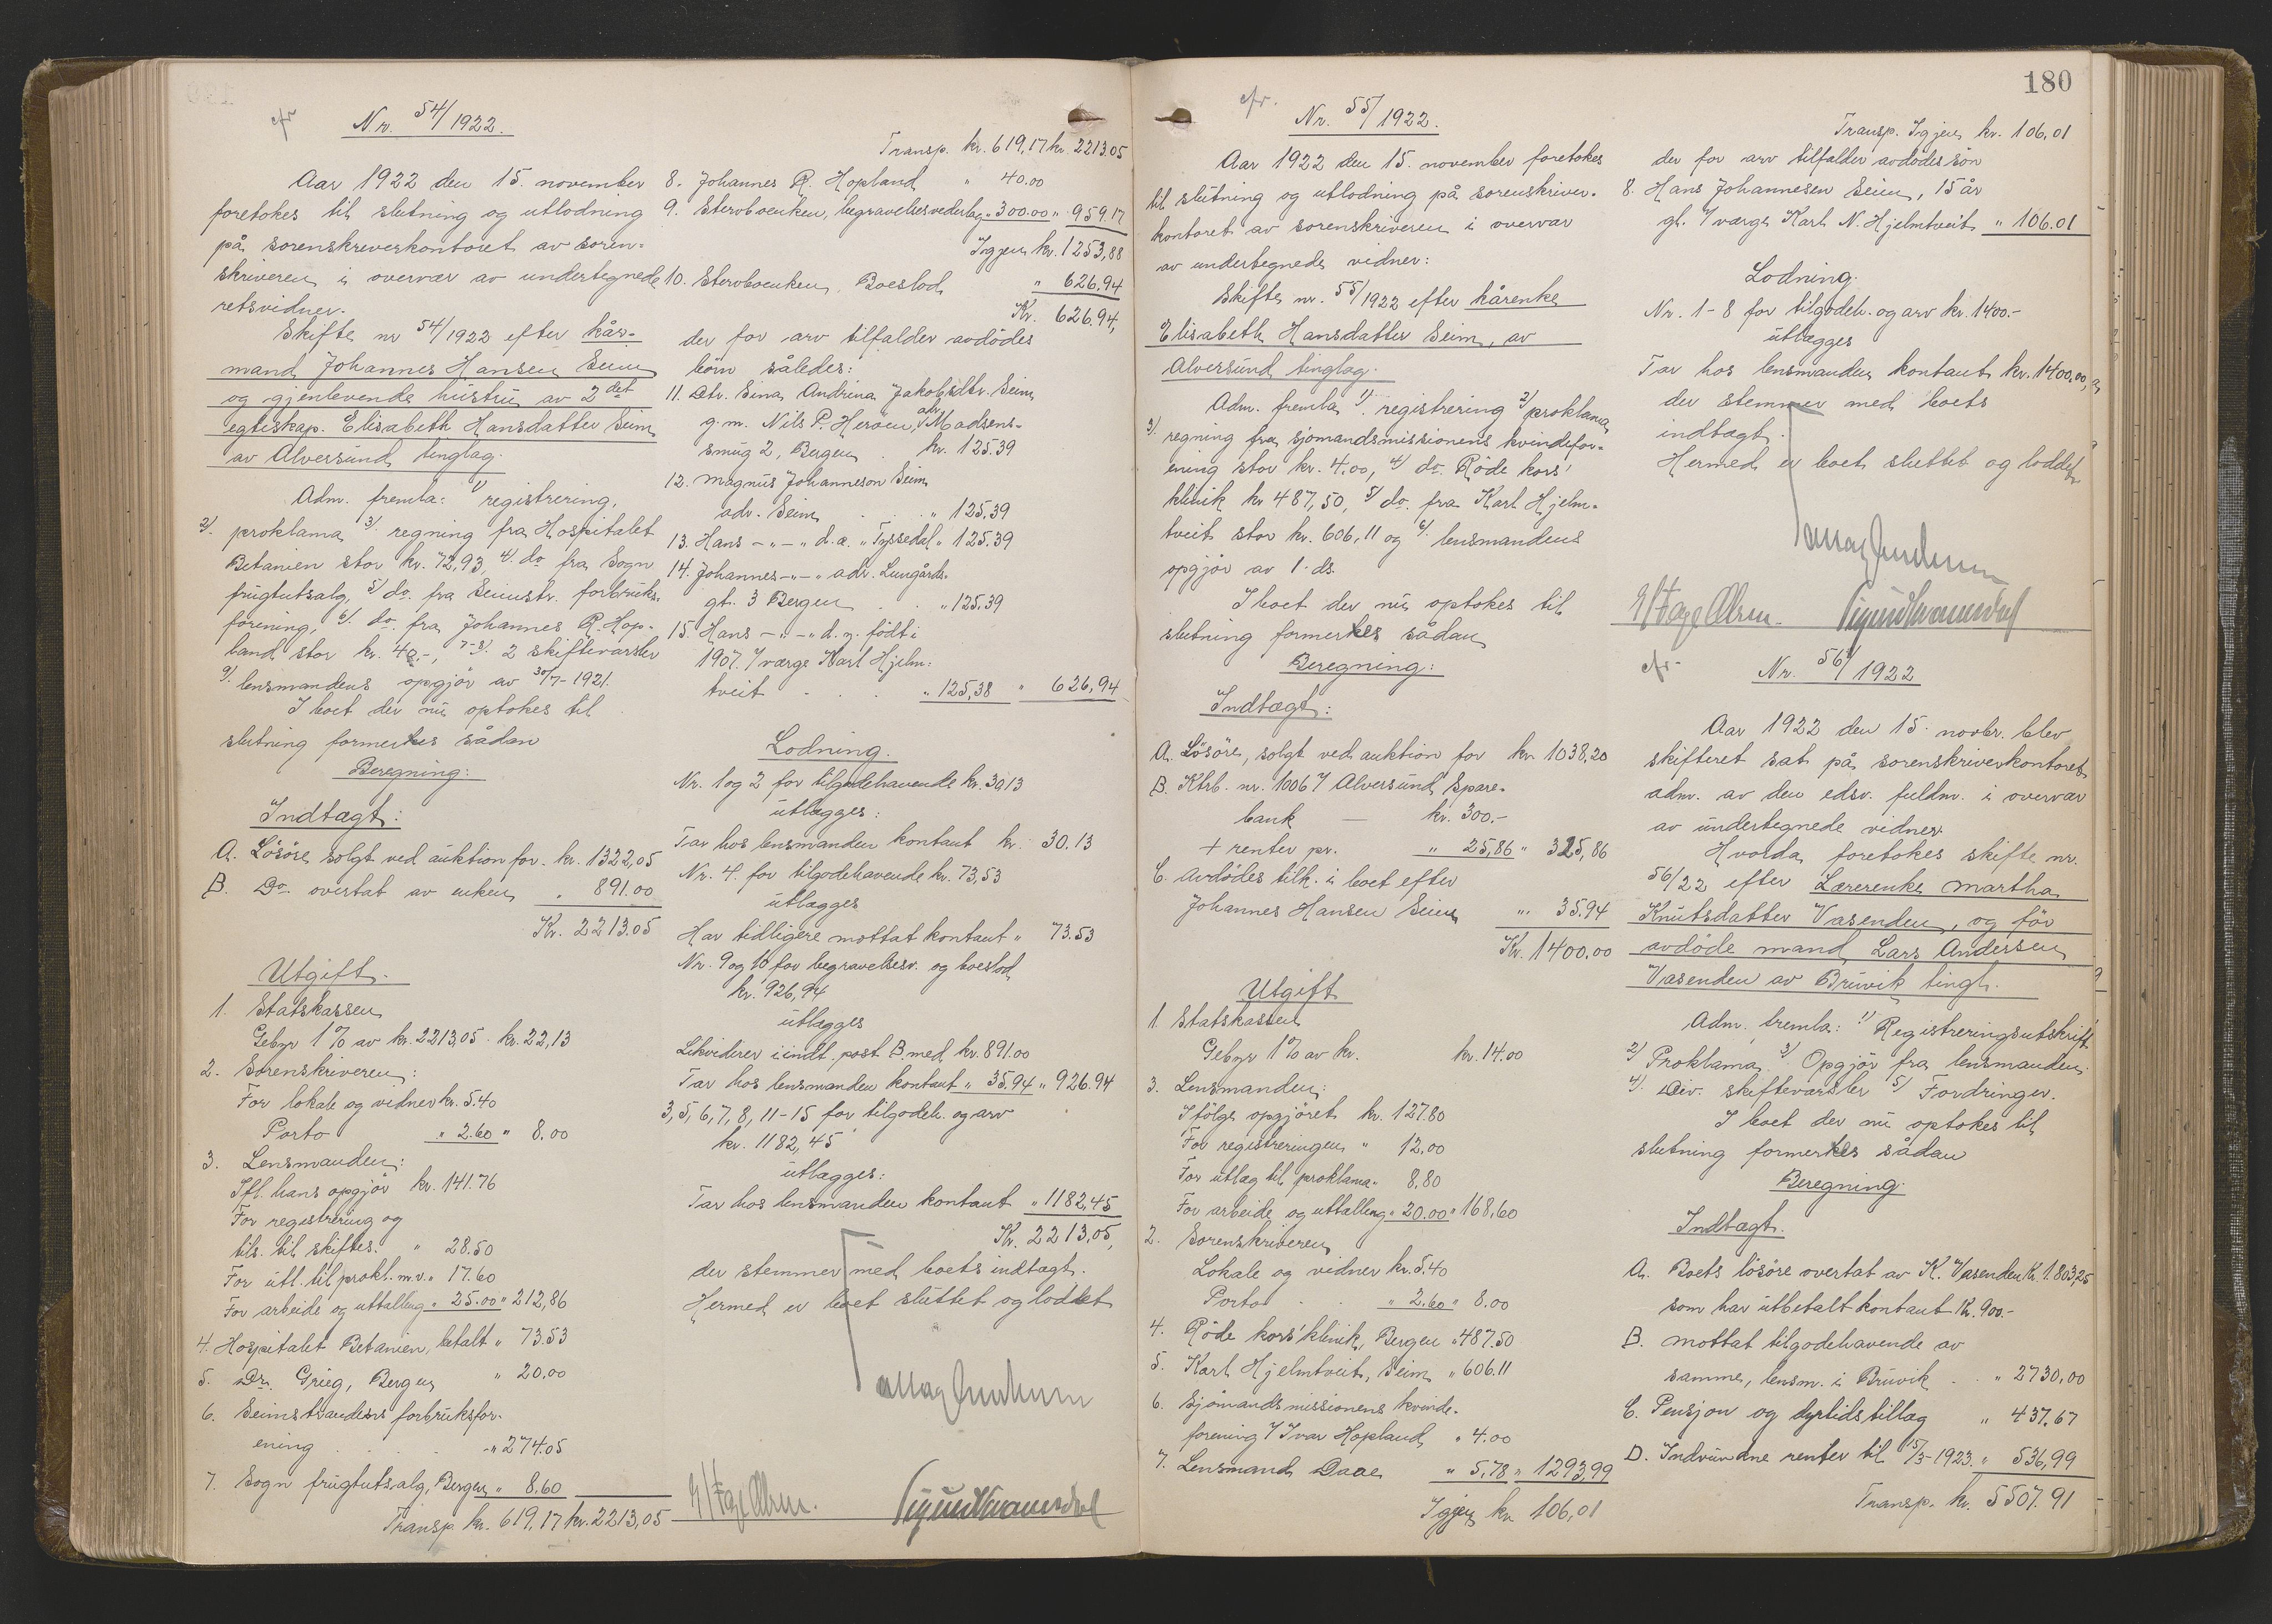 cfr
Nr. 54/1922.
Aar 1922 den 15. november
foretokes til slutning og utlodning
på sorenskriverkontoret av soren-
skriveren i overvær av undertegnede
retsvidner.
Skifte nr 54/1922 efter kår-
mand Johannes Hansen Seim
og gjenlevende hustru av 2det
egteskap. Elisabeth Hansdatter Seim
av Alversund tinglag.
Adm. fremla: 1) registrering,
2) proklama 3) regning fra Hospitalet
Betanien stor kr. 72,93, 4) do fra Sogn
frugtutsalg, 5) do. fra Seimstr. forbruks-
forening, 6) do. fra Johannes R. Hop-
land stor kr. 40.-, 7-8) 2 skiftevarsler
9) lensmandens opgjør av 30/7-1921.
I boet der nu optokes til
slutning formerkes sådan
Beregning:
Indtægt:
A. Løsøre solgt ved auktion for. kr. 1322,05
B. Do. overtat av enken " 891.00
Kr. 2213.05
Utgift.
1. Statskassen
Gebyr 1% av kr. 2213,05. kr. 22,13
2. Sorenskriveren:
For lokale og vidner kr. 5.40
Porto " 2.60 " 8.00
3. Lensmanden:
Ifl. hans opgjør kr. 141.76
For registrering og
tils. til skiftes. " 28.50
For utl. til prokl. m.v. " 17.60
For arbeide og uttalling " 25.00 " 212,86
4. Hospitalet Betanien, betalt " 73.53
5. Dr. Grieg, Bergen " 20.00
6. Seimstrandens forbruksfor-
ening . . . " 274.05
7. Sogn frugtutsalg, Bergen " 8.60
Transp. kr. 619,17 kr. 2213,05
Transp. kr. 619,17 kr. 2213.05
8. Johannes R. Hopland " 40.00
9. Stervboenken, begravelsesvederlag " 300.00 " 959.17
Igjen kr. 1253,88
10. Stervboenken, Boeslod " 626.94
Kr. 626.94,
der for arv tilfalder avdødes
børn således:
11. Dtr. Sina Andrina Jakobsdtr. Seim
g.m. Nils P. Herøen, adr. Madsens-
smug 2, Bergen . kr. 125.39
12. Magnus Johanneson Seim
adr. Seim . . " 125,39
13. Hans - " - " d.æ. "Tyssedal" 125.39
14. Johannes - " - " adr. Lungårds-
gt. 3 Bergen . . " 125.39
15. Hans - " - " d.y. født i
1907. V værge Karl Hjelm-
tveit . . . " 125,38 " 626,94
Lodning.
Nr. 1 og 2 for tilgodehavende kr. 30,13
utlægges:
Tar hos lensmanden kontant kr. 30.13
Nr. 4. for tilgodehavende kr. 73,53
utlægges
Har tidligere mottat kontant " 73.53
Nr. 9 og 10 for begravelsesv. og boeslod
kr. 926,94
utlægges
Likviderer i indt. post B. med kr. 891.00
Tar hos lensmanden kontant " 35.94 " 926.94
3, 5, 6, 7, 8, 11-15 for tilgodeh. og arv
kr. 1182,45
utlægges:
Tar hos lensmanden kontant " 1182,45
Kr. 2213,05,
der stemmer med boets indtægt.
Hermed er boet sluttet og loddet
180
cfr.
Nr. 55/1922.
Aar 1922 den 15. november foretokes
til slutning og utlodning på sorenskriver-
kontoret av sorenskriveren i overvær
av undertegnede vidner:
Skifte nr. 55/1922 efter kårenke
Elisabeth Hansdatter Seim, av
Alversund tinglag.
Adm. fremla 1) registrering 2) proklama
3) regning fra sjømandsmissionens kvindefor-
ening stor kr. 4.00, 4) do. Røde kors'
klinik kr 487,50, 5) do. fra Karl Hjelm-
tveit stor kr. 606,11 og 6) lensmandens
opgjør av 1. ds.
I boet der nu optokes til
slutning formerkes sådan
Beregning:
Indtægt:
A. Løsøre, solgt ved auktion for kr. 1038,20
B. Ktrb. nr. 10067 Alversund Spare-
bank — kr. 300.-
+ renter pr. " 25,86 " 325,86
C. Avdødes tilk. i boet efter
Johannes Hansen Seim " 35.94
Kr. 1400.00
Utgift
1. Statskassen
Gebyr 1% av kr. kr. 14.00
3. Lensmanden:
Ifølge opgjøret kr. 127.80
For registreringen " 12,00
For utlæg til proklama " 8,80
For arbeide og uttalling " 20.00 " 168,60
2. Sorenskriveren
Lokale og vidner kr. 5.40
Porto . . " 2.60 " 8.00
4. Røde kors' klinik, Bergen " 487.50
5. Karl Hjelmtveit, Seim " 606.11
6. Sjømandsmissionens kvinde-
forening V Ivar Hopland " 4.00
7. Lensmand Daae " 5,78 " 1293,99
Igjen kr. 106,01
Transp. Igjen kr. 106,01
der for arv tilfalder avdødes søn
8. Hans Johannesen Seim, 15 år
gl. V værge Karl N. Hjelmtveit " 106.01
Lodning.
Nr. 1-8 for tilgodeh. og arv kr. 1400.-
utlægges
Tar hos lensmanden kontant kr. 1400,00,
der stemmer med boets
indtægt.
Hermed er boet sluttet og loddet
cfr.
Nr. 56/1922
Aar 1922 den 15. novbr. blev
skifteret sat på sorenskriverkontoret
adm. av den edsv. fuldm. i overvær
av undertegnede vidner.
Hvorda foretokes skifte nr.
56/22 efter Lærerenke Martha
Knutsdatter Vasenden, og før
avdøde mand Lars Andersen
Vasenden av Bruvik tingl.
Adm. fremla: 1) Registreringsutskrift
2) Proklama 3) Opgjør fra lensmanden.
4) Div. skiftevarsler 5) Fordringer.
I boet der nu optokes til
slutning formerkes sådan
Beregning
Indtægt.
A. Boets løsøre overtat av K. Vasenden Kr. 1.803,25
som har utbetalt kontant Kr. 900.-
B. Mottat tilgodehavende av
samme, lensm. i Bruvik . . " 2730,00
C. Pensjon og dyrtidstillæg " 437.67
D. Indvundne renter til 15/3-1923. " 536,99
Transp. kr. 5507.91